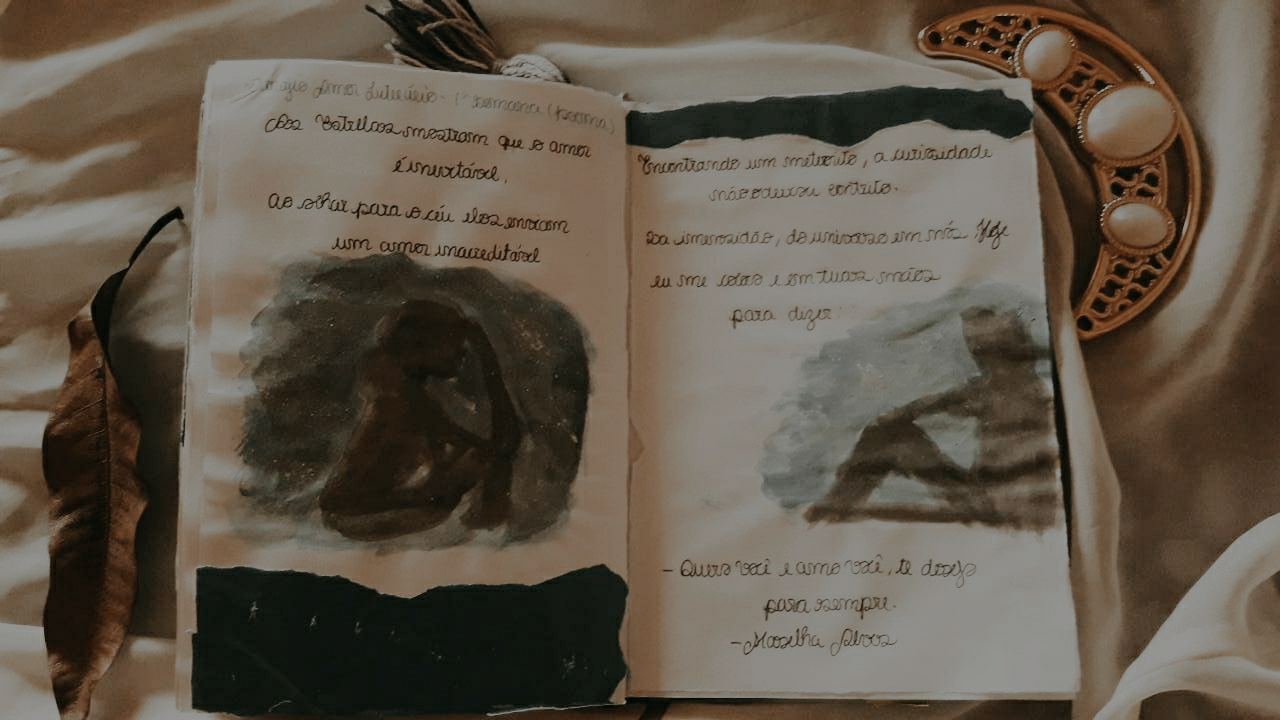 Amor Literário - 1ª semana (poema)
Das Estrellas mostram que o amor
é inevitável.
Ao olhar para o céu elas enviam
um amor inacreditável
Encontrando um meteorito, a curiosidade
não
Da imensidão, do universo em nós. Hoje
eu me coloco em tuas mãos
para dizer:
- Quero você e amo você, te desejo
para sempre.
- Alves